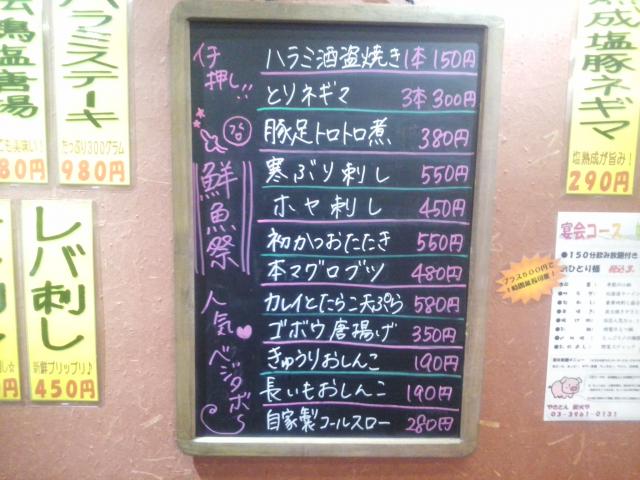 会鶏塩唐揚
とも美味い!
80円
ハラミステーキ
たっぷり300グラム
980円
レバ刺し
新鮮プリップリ♪
450円
仔押し!!
ハラミ酒盗焼き 1本 150円
とりネギマ 3本 300円
豚足トロトロ煮 380円
鮮魚祭
寒ぶり刺し 550円
ホヤ刺し 450円
初かつおたたき 550円
本マグロブツ 480円
カレイとたらこ天ぷら 580円
人気ベジタボ～
ゴボウ唐揚げ 350円
きゅうりおしんこ 190円
長いもおしんこ 190円
自家製コールスロー 280円
熟成塩豚ネギマ
塩熟成が旨み!
290円
宴会コース
●150分飲み放題付き
おひとり様
プラス500円で
1時間延長可能!
03-3961-0131